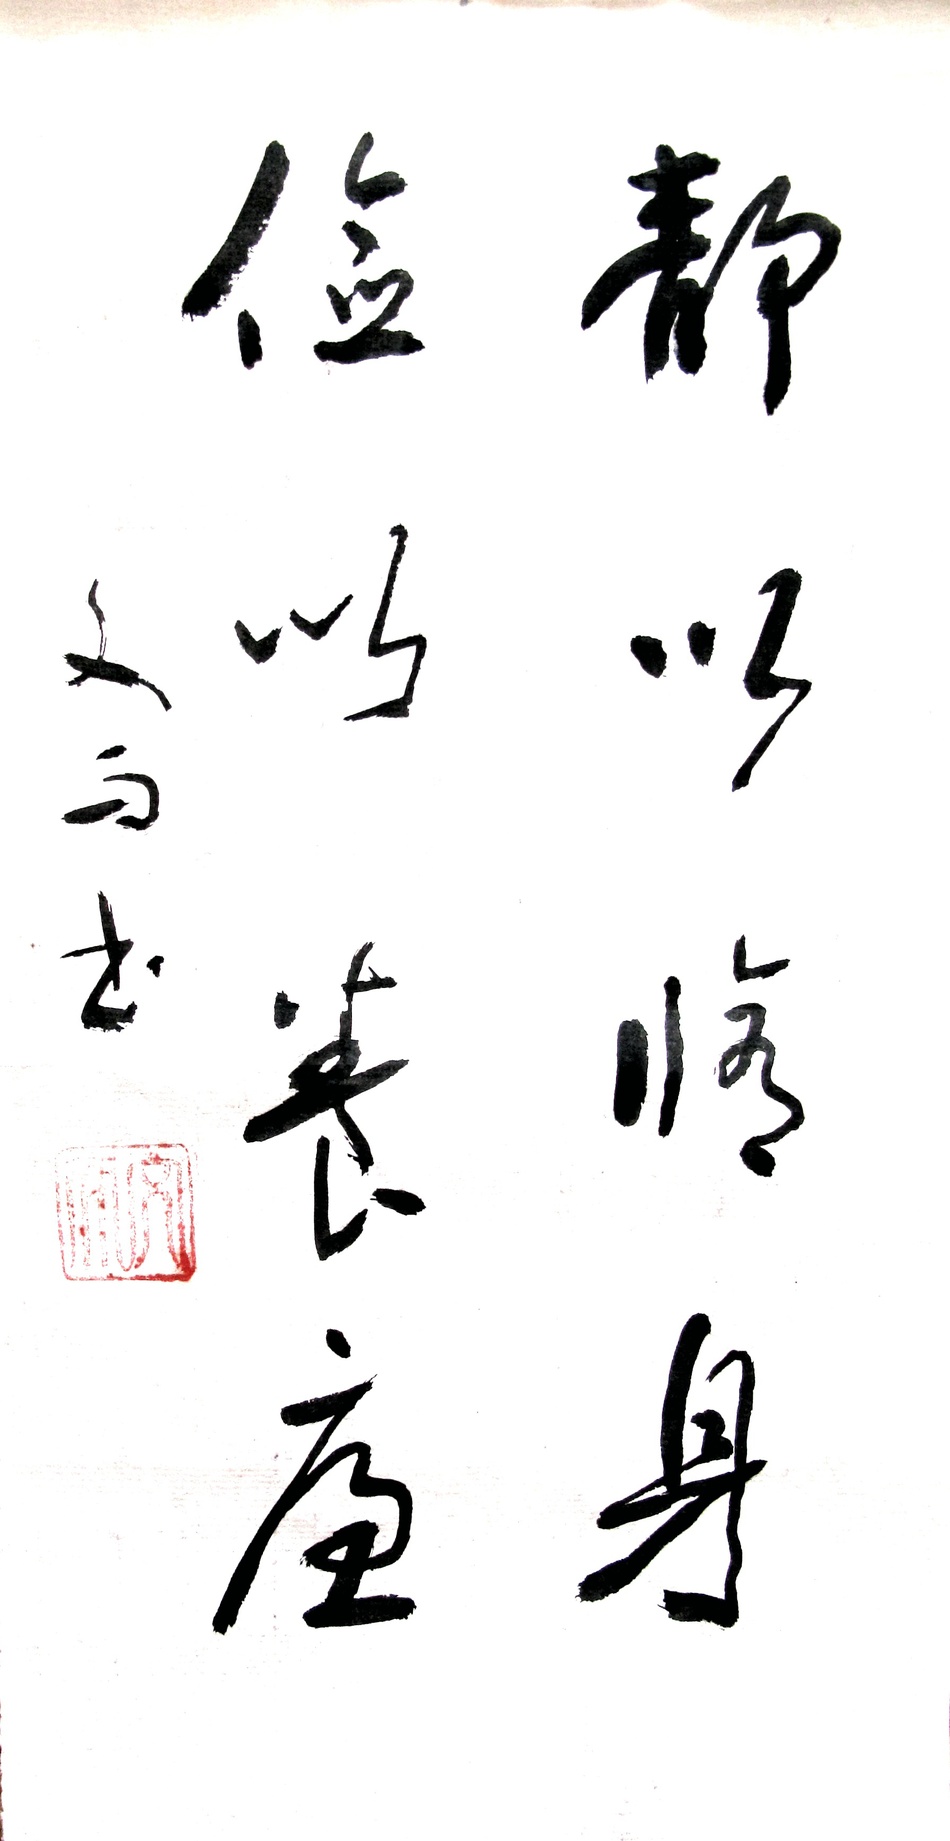 静以修身
俭以养廉
文 书